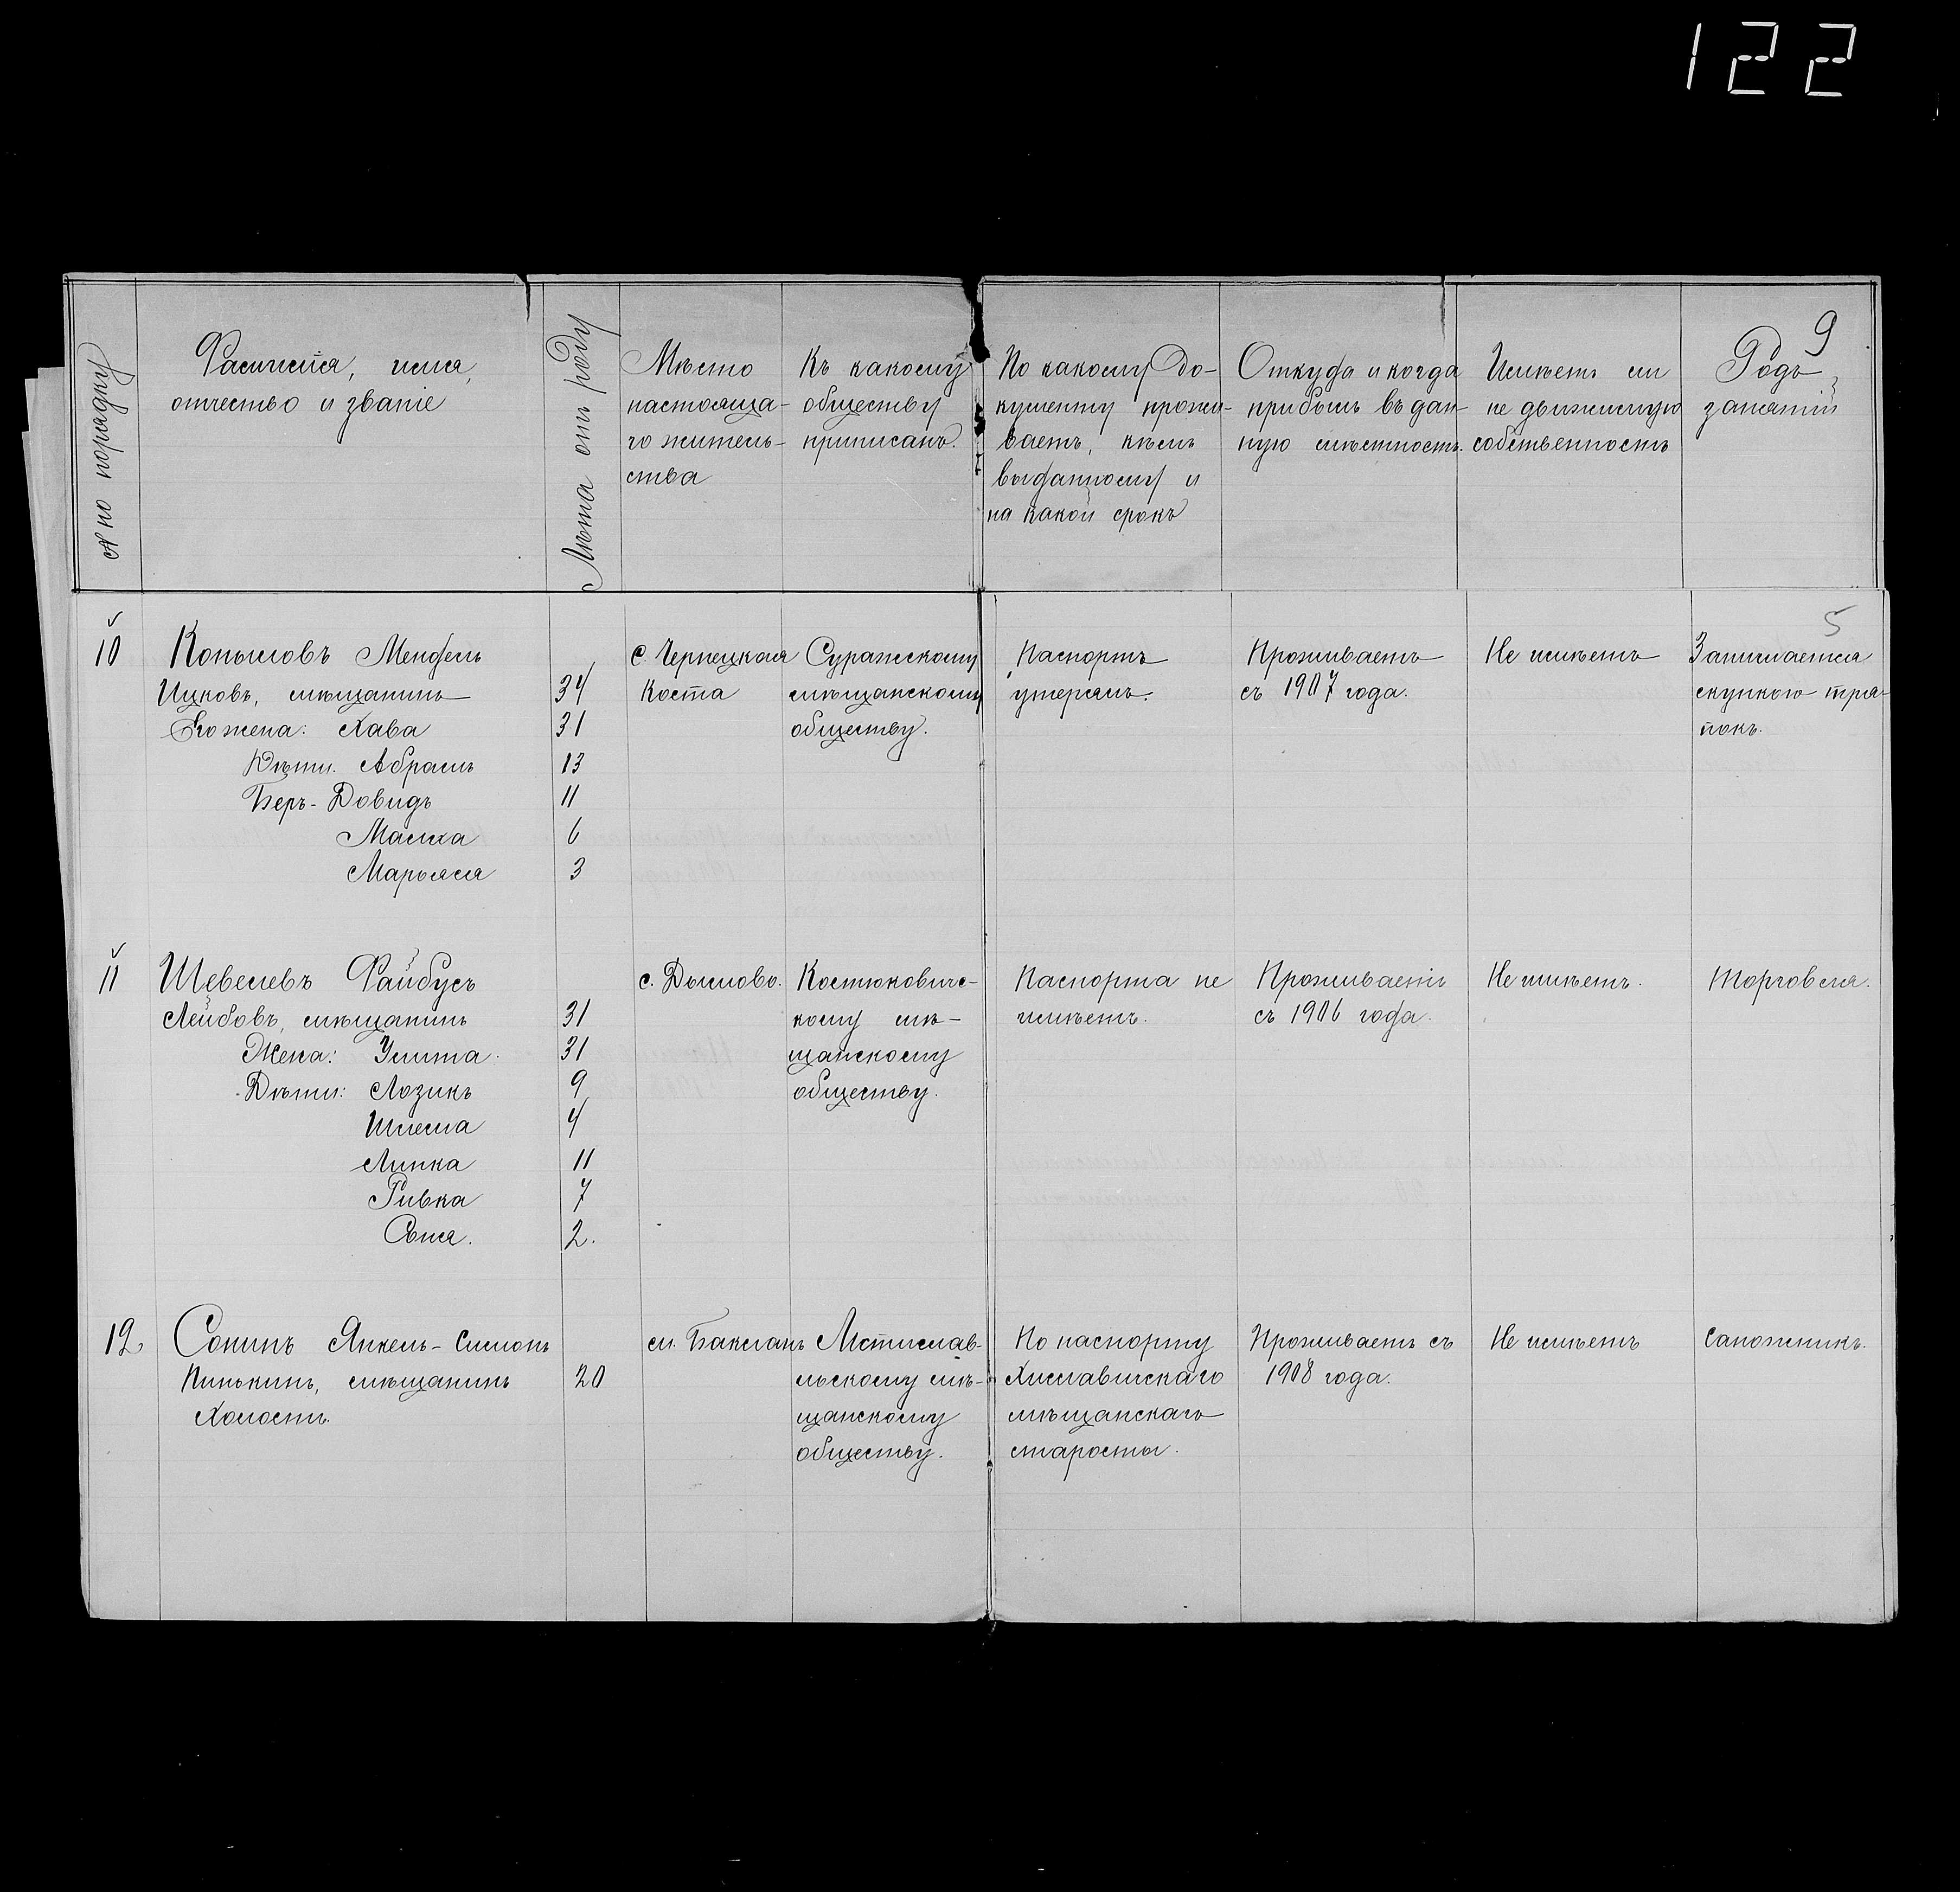 122
9
№ по порядку
Фамилія, имя,
отчество и званіе
Лѣта отъ роду
Мѣсто
настояща-
го житель-
ства
Къ какому
обществу
приписанъ.
По какому до-
кументу прожи-
ваетъ, кѣмъ
выданному и
на какой срокъ
Откуда и когда
прибылъ въ дан-
ную мѣстность.
Имѣетъ ли
не движимую
собственность
Родъ
занятій
5
10 Копыловъ Мендель
Ицковъ, мѣщанинъ 34
Его жена: Хава 31
Дѣти. Абрамъ 13
Беръ-Довидъ 11
Малка 6
Марьяся 3
с. Чернецкая
Коста
Суражскому
мѣщанскому
обществу.
Паспортъ
утерянъ.
Проживаетъ
съ 1907 года.
Не имѣетъ
Занимается
скупкою тря-
покъ.
11 Шевелевъ Файбусъ
Лейбовъ, мѣщанинъ 31
Жена: Улита 31
Дѣти: Лозикъ 9
Шлема 4
Липка 11
Ривка 7
Соня. 2.
с. Дымово.
Костюкович-
кому мѣ-
щанскому
обществу.
Паспорта не
имѣетъ.
Проживаетъ
съ 1906 года.
Не имѣетъ.
Торговля.
12. Сонинъ Янкель-Симонъ
Пинькинъ, мѣщанинъ 20
Холостъ.
м. Бакланъ
Мстислав-
льскому мѣ-
щанскому
обществу.
По паспорту
Хиславичскаго
мѣщанскаго
старосты.
Проживаетъ съ
1908 года.
Не имѣетъ
Сапожникъ.